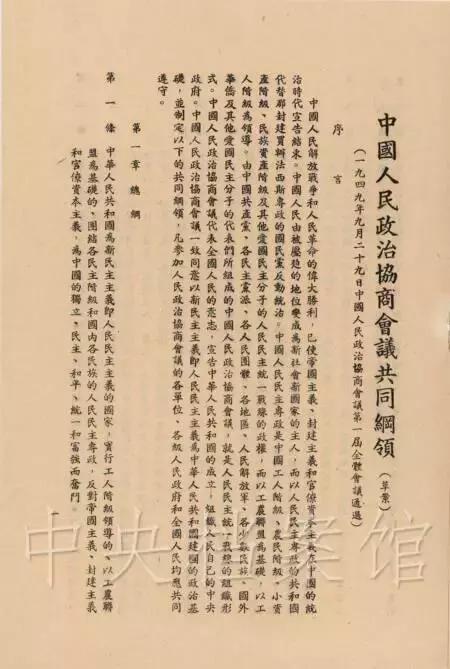 中國人民政治協商會議共同綱領(草案)
(一九四九年九月二十九日中國人民政治協商會議第一屆全體會議通過)
序言
中國人民解放戰爭和人民革命的偉大勝利，已使帝國主義、封建主義和官僚資本主義在中國的統
治時代宣告結束。中國人民由被壓迫的地位變成爲新社會新國家的主人，而以人民民主專政的共和國
代替那封建買辦法西斯專政的國民黨反動統治。中國人民民主專政是中國工人階級、農民階級、小資
產階級、民族資產階級及其他愛國民主分子的人民民主統一戰線的政權，而以工農聯盟爲基礎，以工
人階級爲領導。由中國共產黨、各民主黨派、各人民團體、各地區、人民解放軍、各少數民族、國外
華僑及其他愛國民主分子的代表們所組成的中國人民政治協商會議，就是人民民主統一戰線的組織形
式。中國人民政治協商會議代表全國人民的意志，宣告中華人民共和國的成立，組織人民自己的中央
政府。中國人民政治協商會議一致同意以新民主主義即人民民主主義爲中華人民共和國建國的政治基
礎，並制定以下的共同綱領，凡參加人民政治協商會議的各單位、各級人民政府和全國人民均應共同
遵守。
第一章 總綱
第一條 中華人民共和國爲新民主主義即人民民主主義的國家，實行工人階級領導的、以工農聯
盟爲基礎的、團結各民主階級和國內各民族的人民民主專政，反對帝國主義、封建主義
和官僚資本主義，爲中國的獨立、民主、和平、統一和富強而奮鬥。
一
中央档案馆